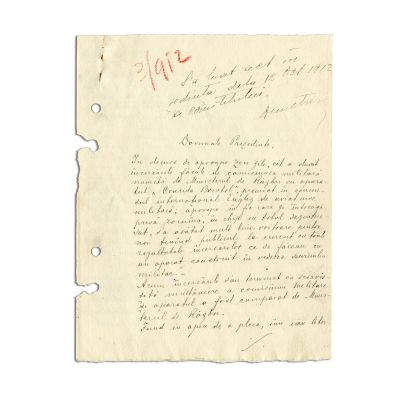 3/912
S'a luat act în
ședința dela 15 Oct 1912
a comitetului.
Domnule Președinte,
In decurs de aproape zece zile, cît a durat
încercările făcute de comisiunea militară
numită de Ministerul de Răsboi cu apara-
tul „Coanda Bristol", premiat în
internațional englez de aviațiune
militară, aproape în și întreaga
presă romînă, în chip cu totul dezinteresat,
s'a arătat mult bine voitoare pentru
noi ținînd publicul la curent cu toate
rezultatele încercărilor ce se făceau cu
un aparat construit în vederea serviciului
militar.-
Acum încercările s'au terminat cu desăvîr-
șită mulțumire a comisiunii militare
și aparatul a fost cumpărat de Minis-
terul de Răsboi.
Fiind în ajun de a pleca, îmi iau liber-